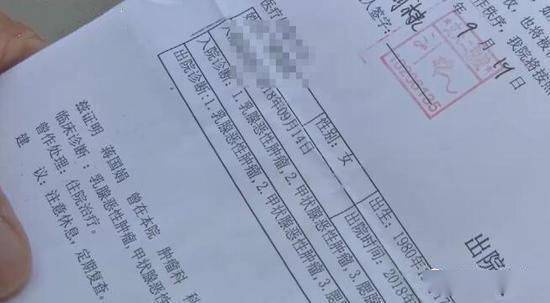 出院
医疗
性别：女 出生：1980年
18年09月14日 出院时间：2018年
入院诊断：1.乳腺恶性肿瘤,2.甲状腺恶性肿瘤,3.腰
出院诊断：1.乳腺恶性肿瘤,2.甲状腺恶性肿瘤,3.腰
兹证明 蒋国娟 曾在本院 肿瘤科 科
临床诊断：乳腺恶性肿瘤,甲状腺恶性
曾作处理：住院治疗。
建 议：注意休息，定期复查。
也将被
作秩序，我院将按照
人签字：
年9月17日